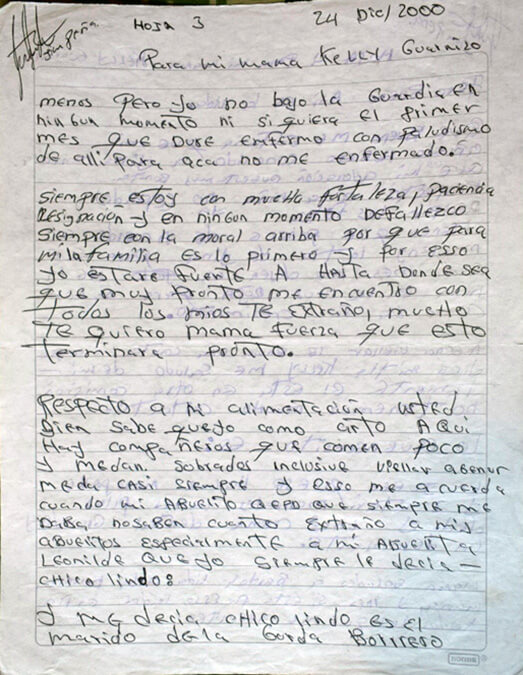 HOJA 3
24 Dic/2000
Para mi mama Kelly Guarnizo
menos Pero yo no bajo la Guardia en
ningun momento ni si quiera el primer
mes que Dure enfermo con paludismo
de alli para aca no me enfermado.
Siempre estoy con mucha fortaleza, paciencia
resignacion y en ningun momento Defallezco
siempre con la moral arriba por que para
mi la familia es lo primero y por esso
yo estare fuente A HASTA Donde sea
que muy pronto me encuentro con
Todos los mios Te Extraño, mucho
Te quiero mama fuerza que esto
Terminara pronto.
Respecto a mi alimentación usted
Bien sabe que yo como arto AQUI
Hay compañeros que comen poco
y me dan. sobrados inclusive
me da casi siempre y esso me acuerda
cuando mi ABUELITO que siempre me
Daba, no saben cuanto Extraño a mis
abuelitos especialmente a mi Abuelita
Leonilde que yo siempre le decia —
chico lindo:
y me decia chico lindo es el
marido de la Gorda Borrero
norma